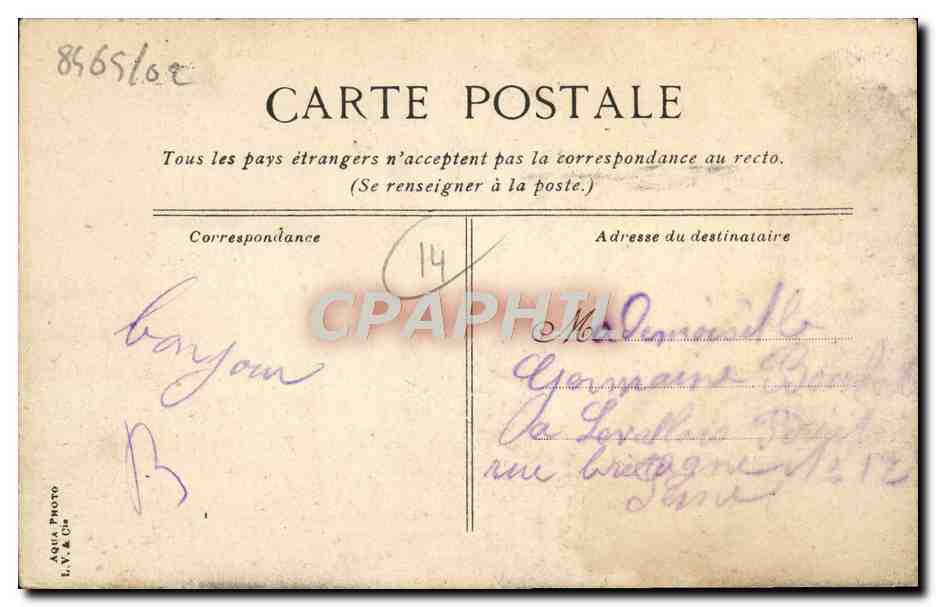 8565/02
CARTE POSTALE
Tous les pays étrangers n'acceptent pas la correspondance au recto.
(Se renseigner à la poste.)
Correspondance
14
Adresse du destinataire
CPAPHIL
bonjour
B
Mademoiselle
Germaine
a Levallois
rue bretagne
Seine
AQUA PHOTO
L. V. & Cie